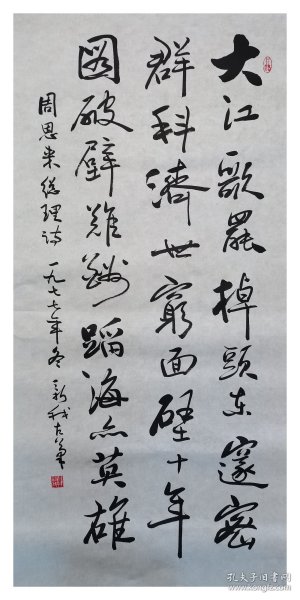 大江歌罷掉頭东邃密
群科濟世窮面壁十年
圖破壁難酬蹈海亦英雄
周恩来总理诗 一九七七年冬 新我左笔
孔夫子旧书网